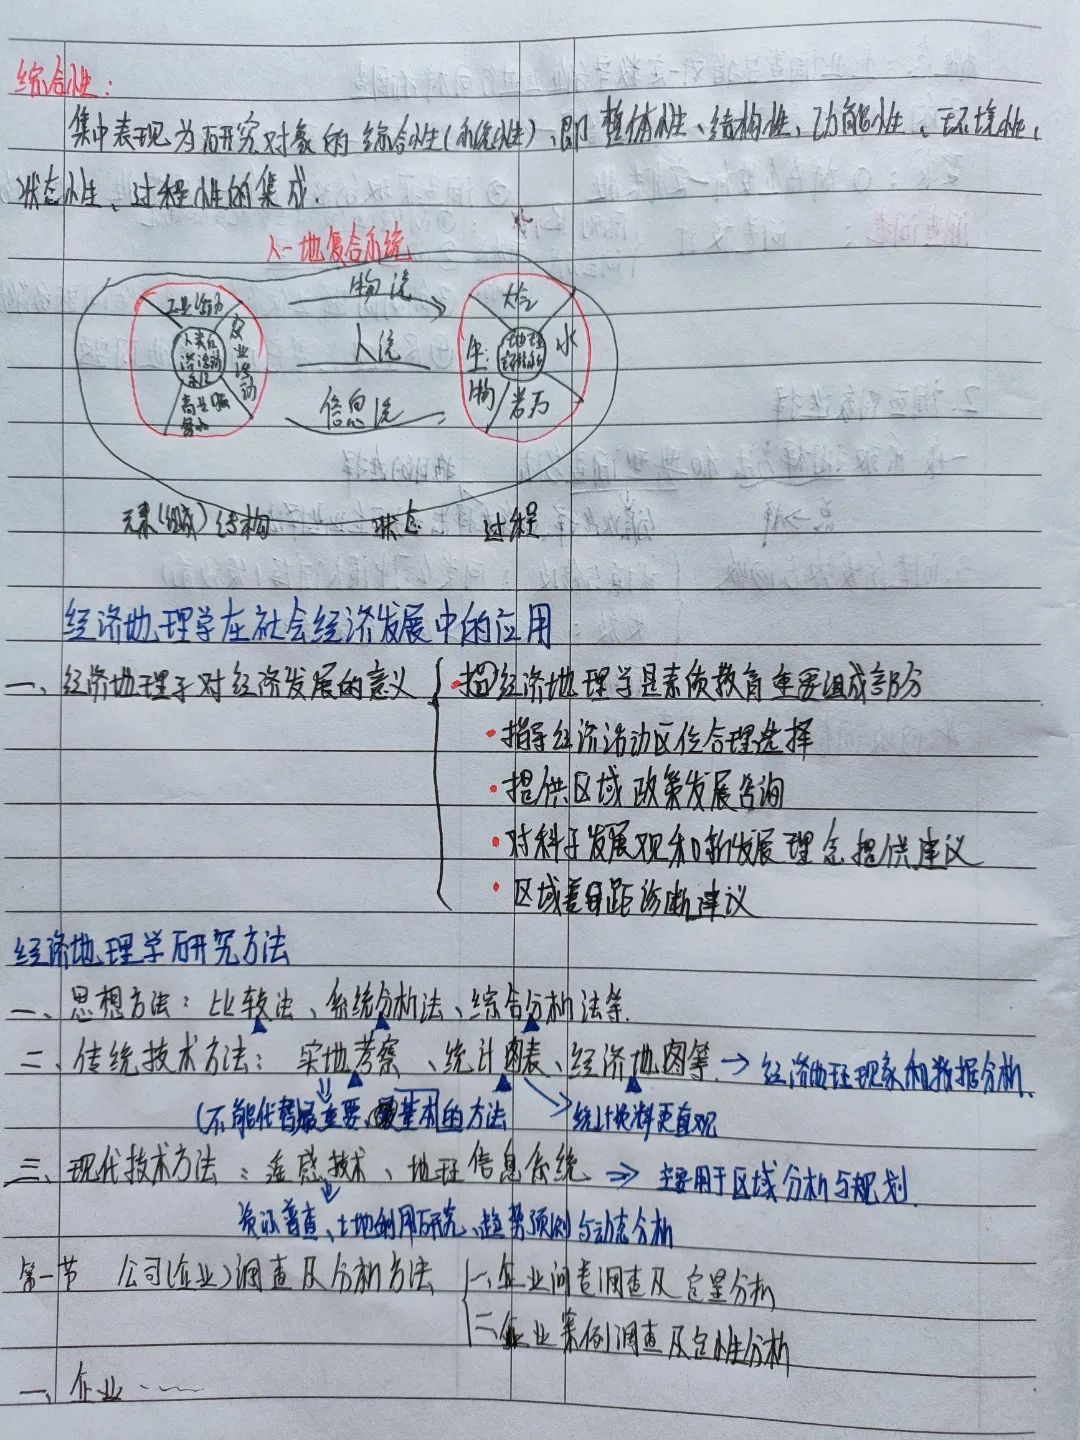 综合性：
集中表现为研究对象的综合性(系统性)、即整体性、结构性、功能性、环境性、
状态性、过程性的集成.
人一地复合系统
工业活动
农业活动
人类经济活动系统
商业服务业
物流
人流
信息流
大气
水
岩石
生物
地理环境系统
元素(组成) 结构 状态 过程
经济地理学在社会经济发展中的应用
一、经济地理学对经济发展的意义
·把经济地理学是素质教育重要组成部分
·指导经济活动区位合理选择
·提供区域政策发展咨询
·对科学发展观和新发展理念提供建议
·区域差距诊断建议
经济地理学研究方法
一、思想方法：比较法、系统分析法、综合分析法等.
二、传统技术方法：实地考察、统计图表、经济地图等. → 经济地理现象和数据分析.
(不能代替最重要、最基本的方法 统计资料更直观
三、现代技术方法：遥感技术、地理信息系统 ⇒ 主要用于区域分析与规划.
资源普查、土地利用研究、趋势预测与动态分析
第一节 公司(企业)调查及分析方法
一、企业问卷调查及定量分析
二、企业案例调查及定性分析
一、企业……